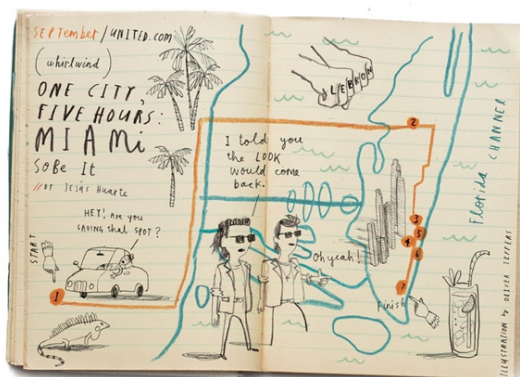 SEPTEMBER/UNITED.COM
(whirlwind)
ONE CITY,
FIVE HOURS:
MIAMi
SoBe It
//BY JESÚS HUARTE
HEY! Are you
SAVING that SPOT?
START
1
I told you
the LOOK
would come
back.
Oh yeah!
LEBRON
2
3
5
4
6
7
Finish
Florida CHANNEL
ILLUSTRATION by OLIVER JEFFERS